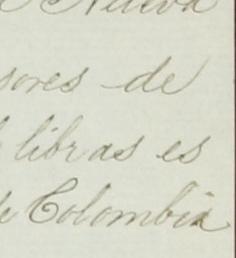 Nueva
sores de
libras es
de Colombia